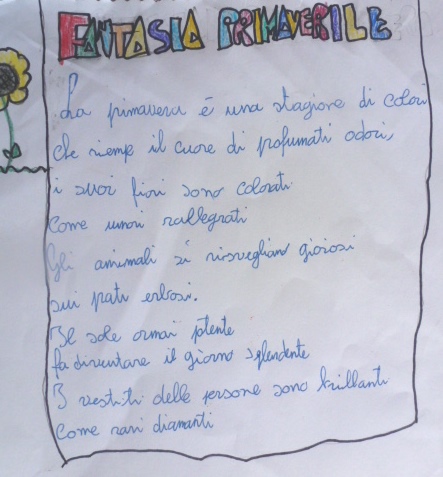 FANTASIA PRIMAVERILE
La primavera è una stagione di colori
che riempe il cuore di profumati odori,
i suoi fiori sono colorati
Come umori rallegrati
Gli animali si risvegliano gioiosi
sui prati erbosi.
Il sole ormai potente
fa diventare il giorno splendente
I vestiti delle persone sono brillanti
Come rari diamanti